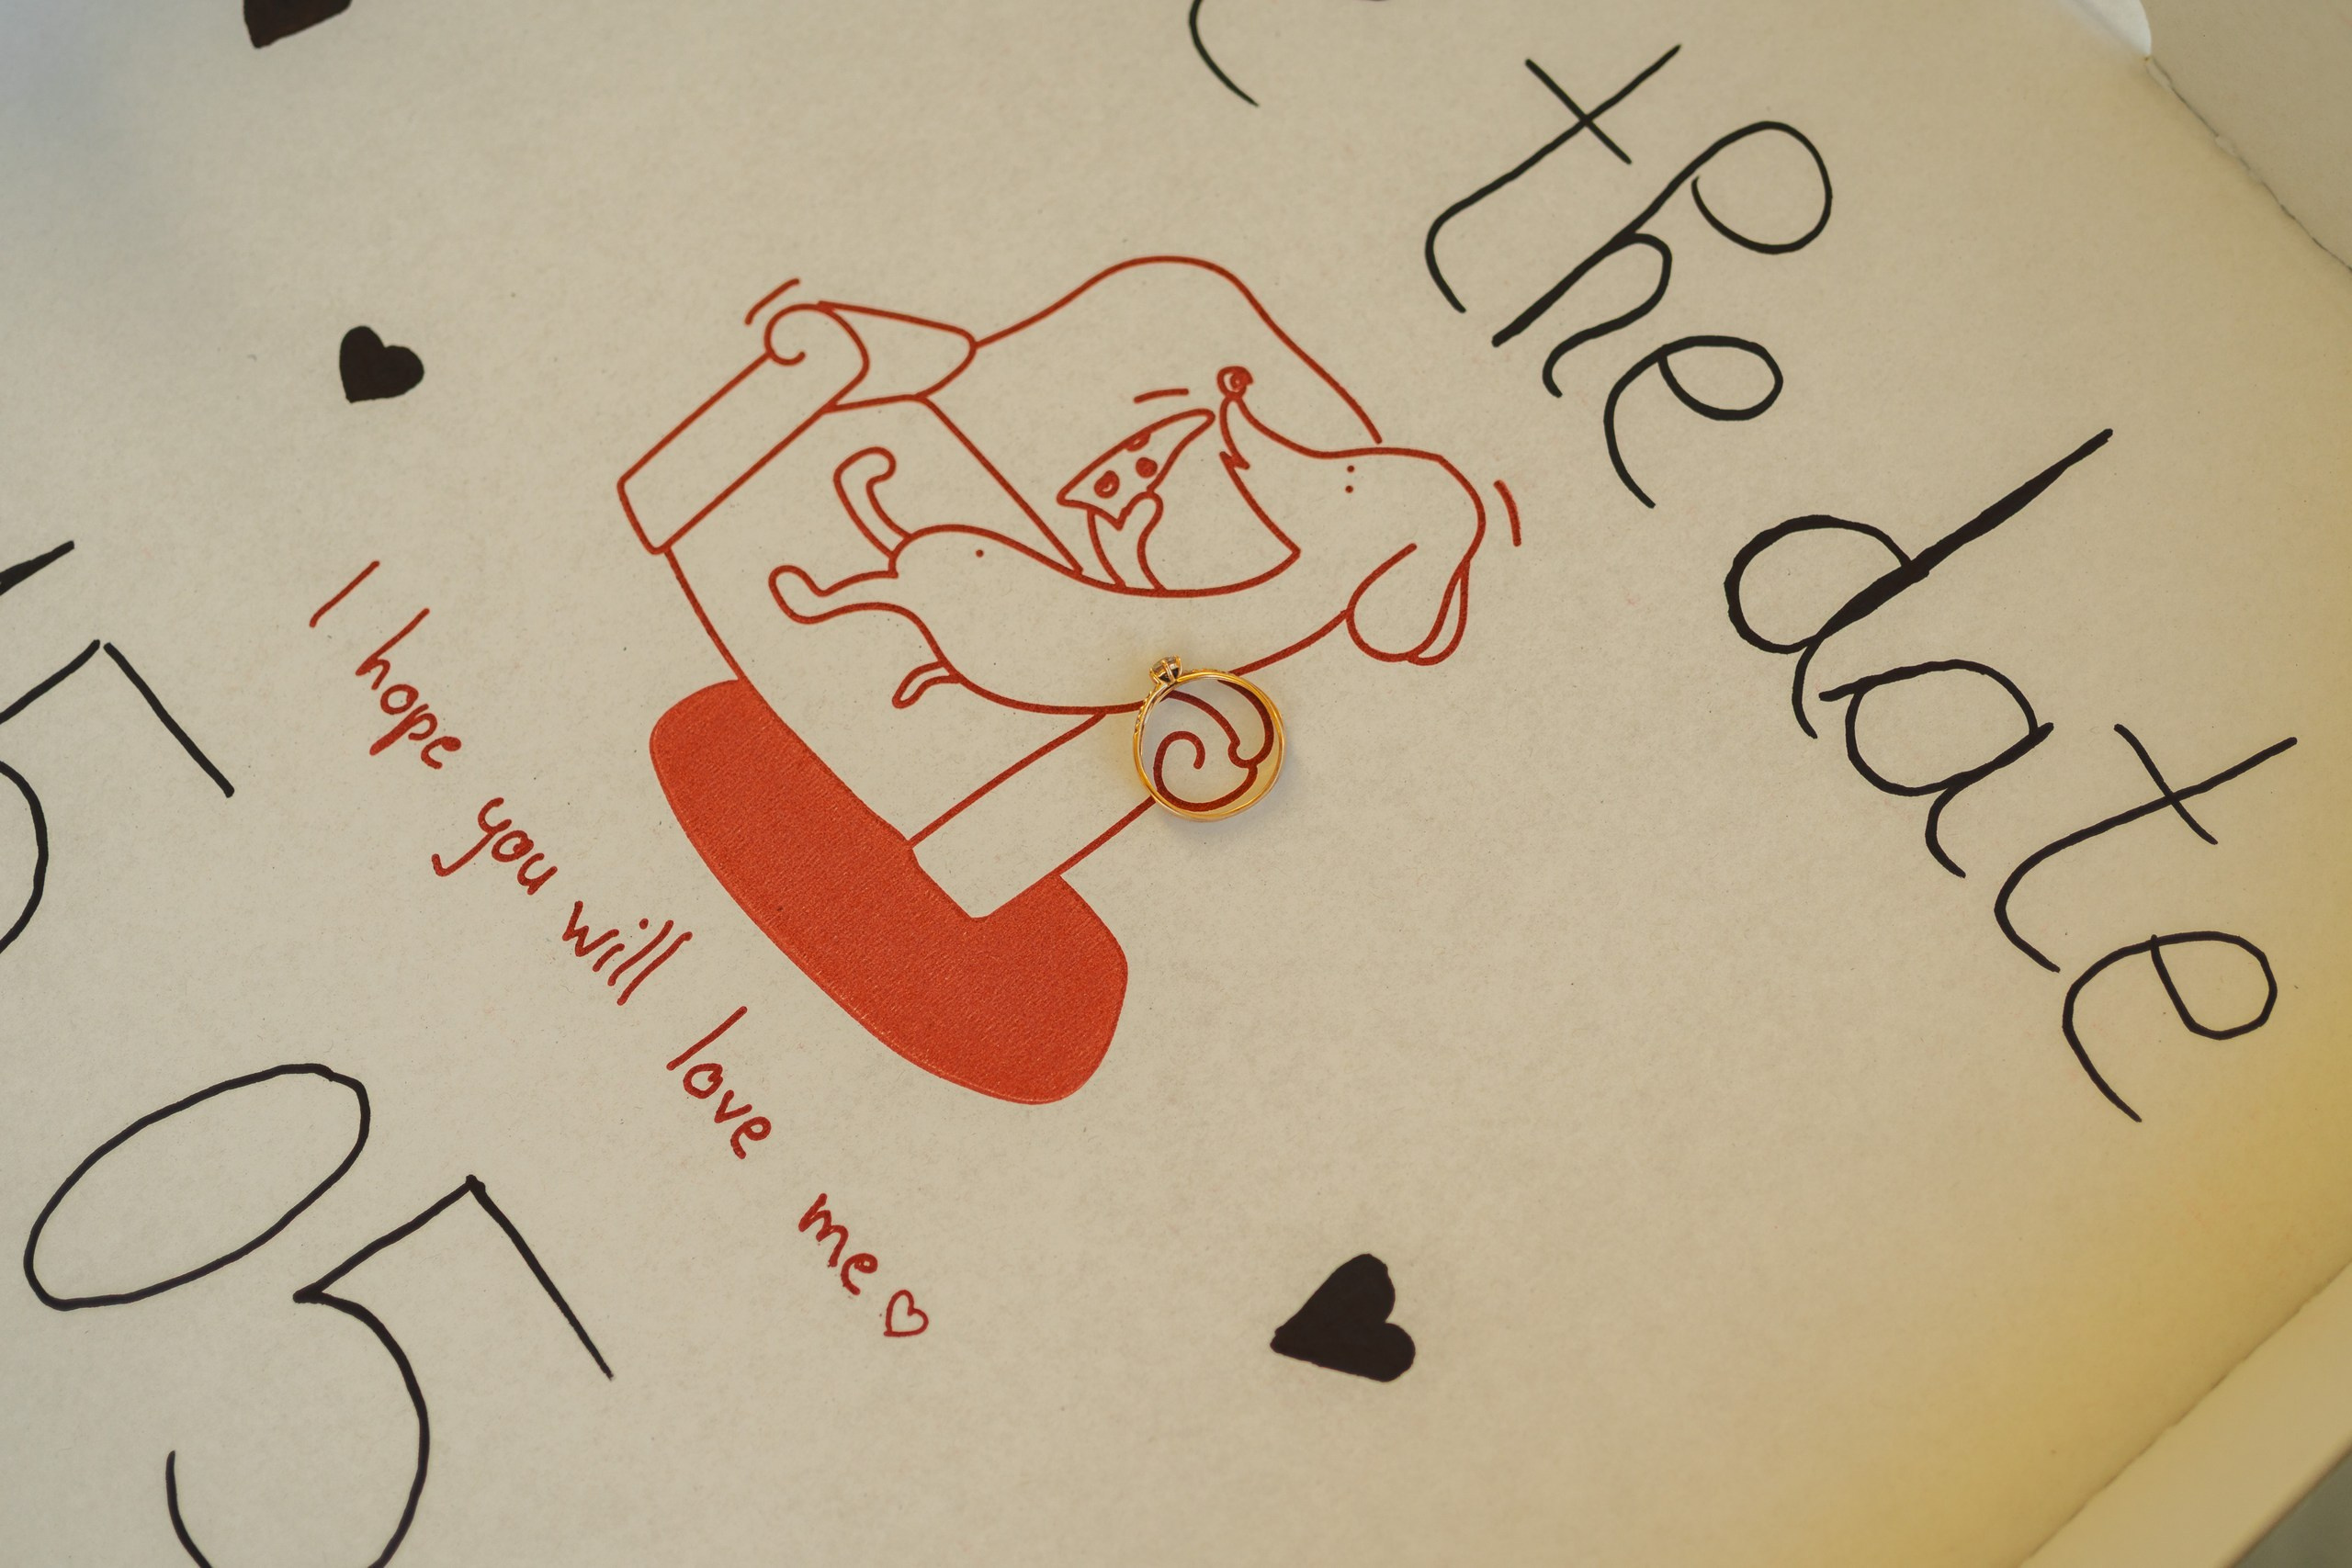 the date
I hope you will love me♡
5 05